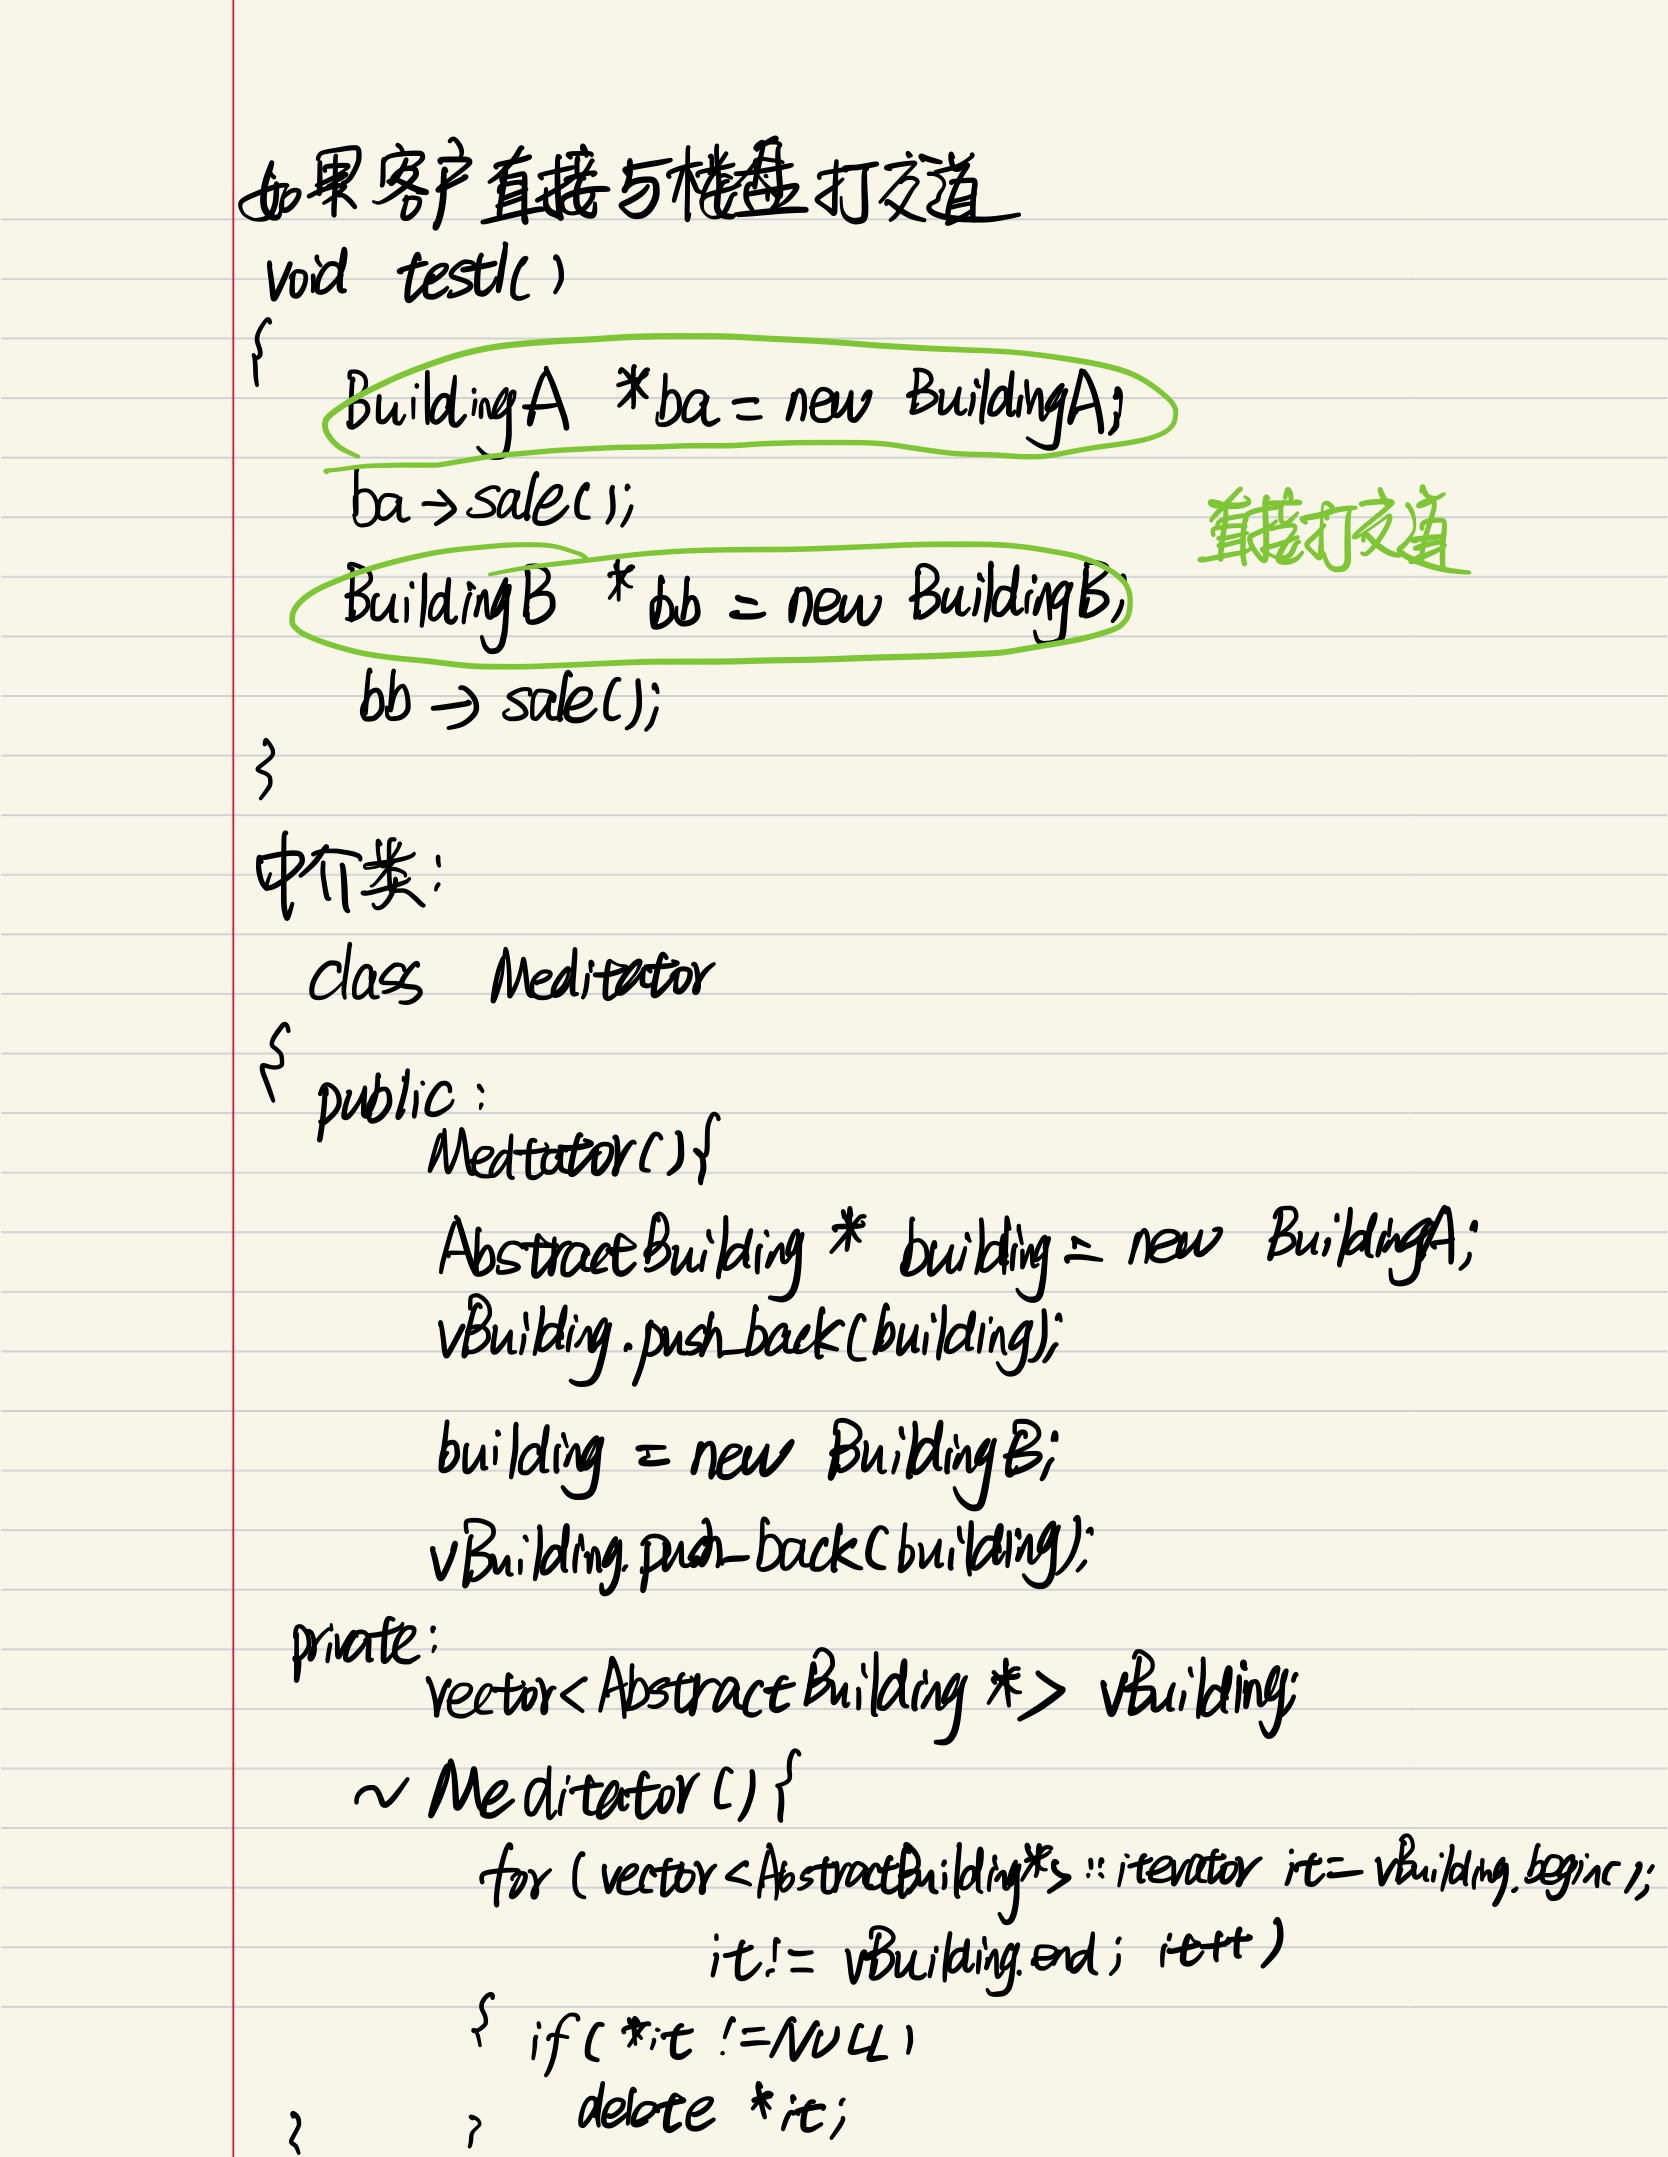 如果客户直接与楼盘打交道
void test1()
{
BuildingA *ba = new BuildingA;
ba->sale();
直接打交道
BuildingB *bb = new BuildingB;
bb -> sale();
}
中介类:
class Meditator
{
public:
Medtator(){
AbstractBuilding * building = new BuildingA;
vBuilding.push_back(building);
building = new BuildingB;
vBuilding.push_back(building);
private:
vector<AbstractBuilding *> vBuilding;
~Meditator(){
for (vector<AbstractBuilding*>::iterator it= vBuilding.begin();
it != vBuilding.end; it++)
{ if(*it !=NULL)
delete *it;
} }